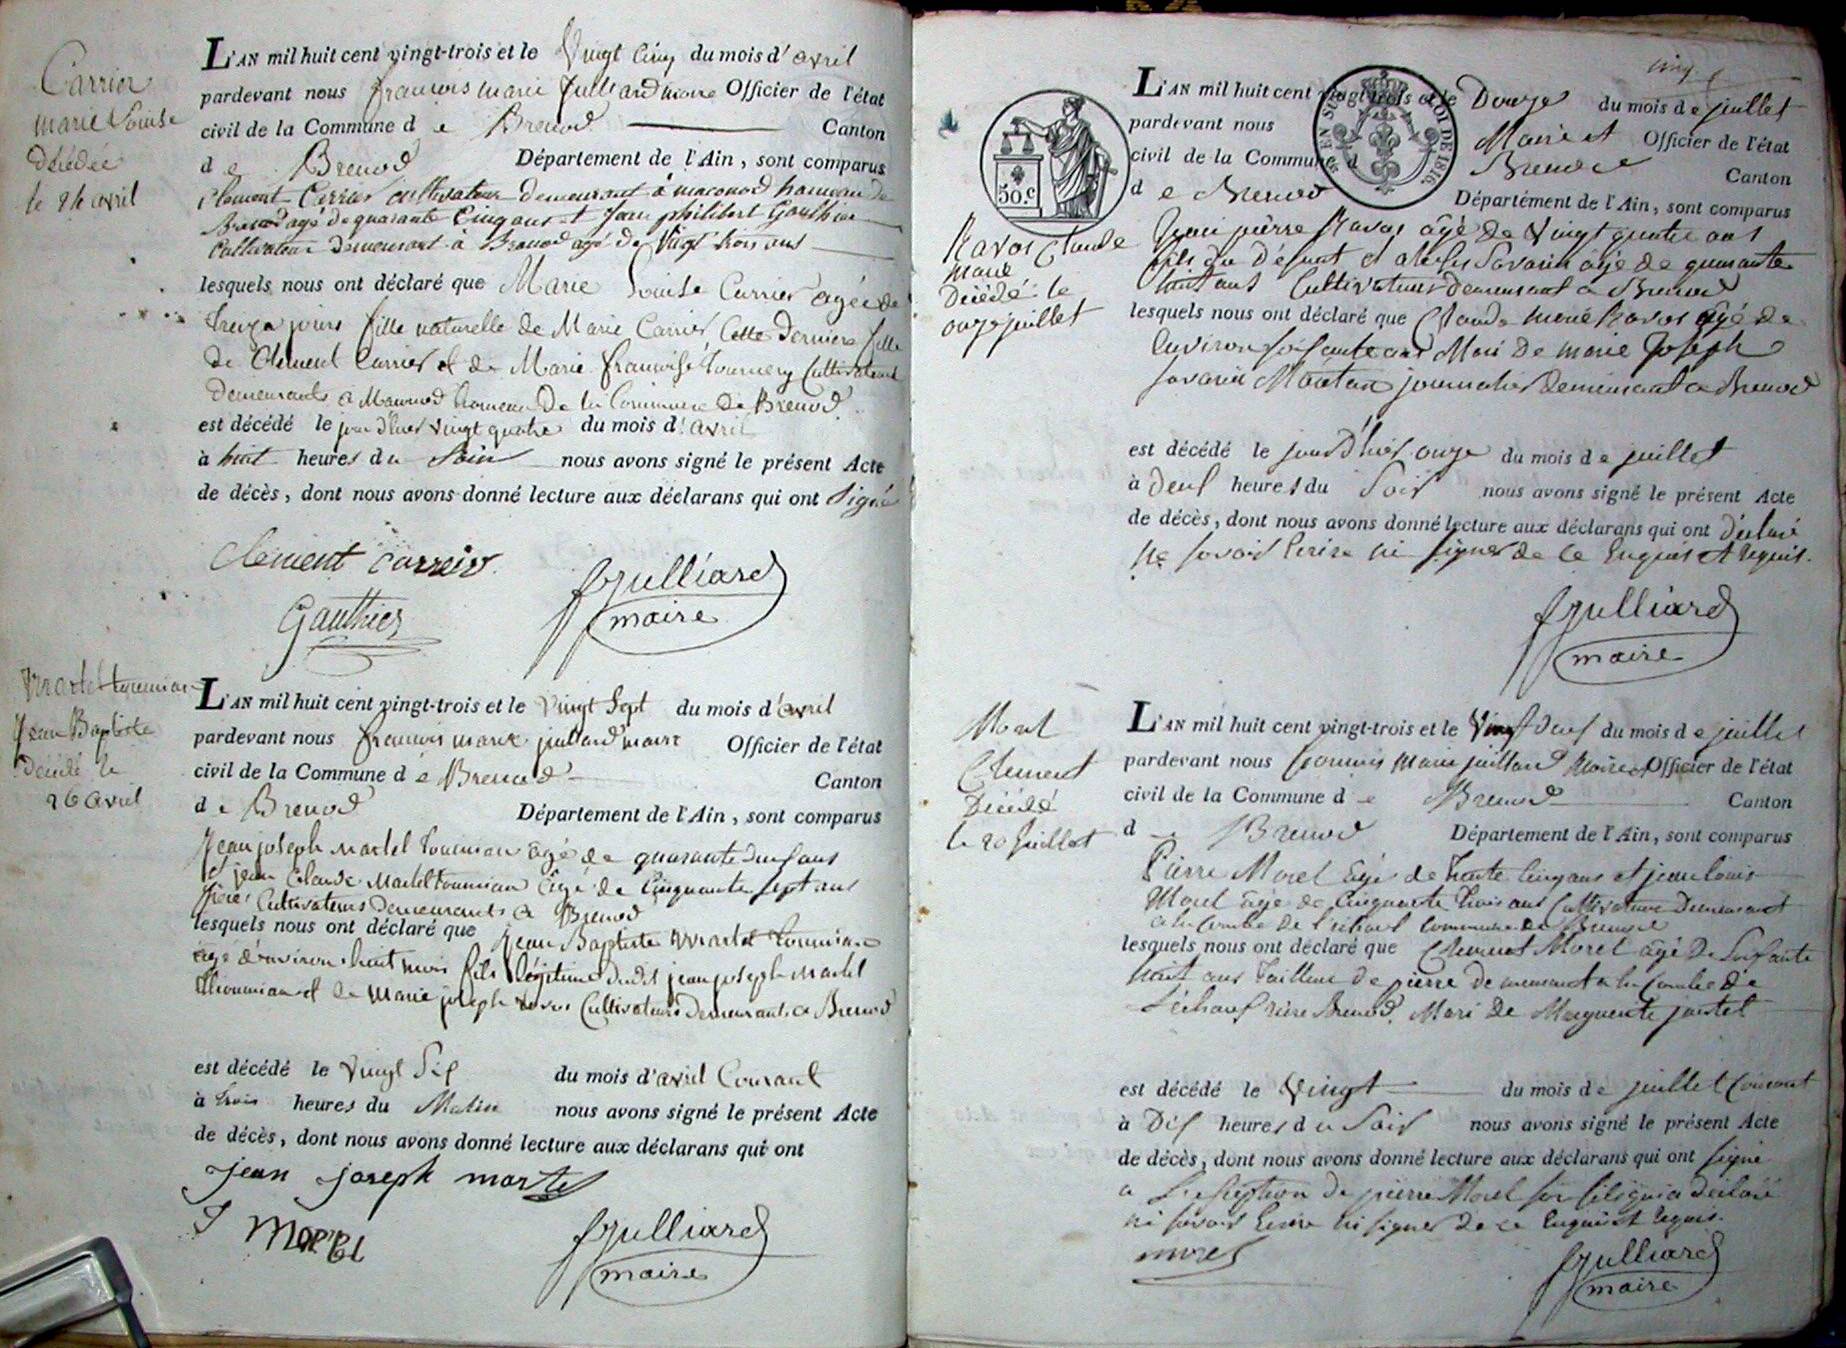 Carrier
marie Louise
décédée
le 24 avril
L'AN mil huit cent vingt-trois et le Vingt Cinq du mois d'avril
pardevant nous françois marie Julliard maire Officier de l'état
civil de la Commune de Brenod Canton
de Brenod Département de l'Ain, sont comparus
Clement Carrier cultivateur demeurant à maconod hameau de
Brenod agé de quarante Cinq ans et Jean philibert Gauthier
Cultivateur demeurant à Brenod agé de Vingt trois ans
lesquels nous ont déclaré que Marie Louise Carrier agée de
treize jours fille naturelle de Marie Carrier Cette Derniere fille
de Clement Carrier et de Marie françoise Tournery Cultivateurs
demeurants à Maconod hameau De la Commune de Brenod
est décédé le jour d'hier vingt quatre du mois d'avril
à huit heures du Soir nous avons signé le présent Acte
de décès, dont nous avons donné lecture aux déclarans qui ont Signé
Clement Carreir
Gauthier
fJulliard
maire
Martel tournian
Jean Baptiste
Décédé le
26 avril
L'AN mil huit cent vingt-trois et le Vingt Sept du mois d'avril
pardevant nous françois marie julliard maire Officier de l'état
civil de la Commune de Brenod Canton
de Brenod Département de l'Ain, sont comparus
Jean joseph Martel Tournian agé de quarante deux ans
et jean Claude Martel tournian agé de Cinquante sept ans
frères Cultivateurs Demeurants à Brenod
lesquels nous ont déclaré que Jean Baptiste Martel Tournian
agé d'environ huit mois fils légitime dudit jean joseph Martel
Thournian et de Marie joseph Ravos Cultivateurs Demeurants a Brenod
est décédé le Vingt Six du mois d'avril Courant
à trois heures du Matin nous avons signé le présent Acte
de décès, dont nous avons donné lecture aux déclarans qui ont
jean joseph martel
J Martel
fJulliard
maire
cinq
50.c
EN SUS
LOI DE 1816.
Ravos Claude
Marie
Décédé le
onze juillet
L'AN mil huit cent vingt-trois et le Douze du mois de juillet
pardevant nous Maire et Officier de l'état
civil de la Commune de Brenod Canton
de Brenod Département de l'Ain, sont comparus
pierre Ravos agé de Vingt quatre ans
fils du Défunt et alexis Savarin agé de quarante
huit ans Cultivateurs demeurant a Brenod
lesquels nous ont déclaré que Claude Marie Ravos agé de
Environ soixante ans Mari De marie Joseph
Savarin journalier Demeurant a Brenod
est décédé le jour d'hier onze du mois de juillet
à Deux heures du Soir nous avons signé le présent Acte
de décès, dont nous avons donné lecture aux déclarans qui ont Déclaré
ne savoir Ecrire ni signer de ce Enquis et requis.
fJulliard
maire
Morel
Clement
Décédé
le 20 juillet
L'AN mil huit cent vingt-trois et le Vingt deux du mois de juillet
pardevant nous françois Marie juillard Maire et Officier de l'état
civil de la Commune de Brenod Canton
d Brenod Département de l'Ain, sont comparus
Pierre Morel agé de trente Cinq ans et jean louis
Morel agé de Cinquante trois ans Cultivateurs Demeurant
a la Combe de l'échaux Commune de Brenod
lesquels nous ont déclaré que Clement Morel agé de Soixante
huit ans Tailleur de pierre demeurant a la Combe de
L'échaux rière Brenod. Mari De Marguerite jantet
est décédé le Vingt du mois de juillet Courant
à Dix heures du Soir nous avons signé le présent Acte
de décès, dont nous avons donné lecture aux déclarans qui ont signé
a L'exception de pierre Morel déclaré
ni savoir Ecrire ni signer de ce Enquis et requis.
morel
fJulliard
maire